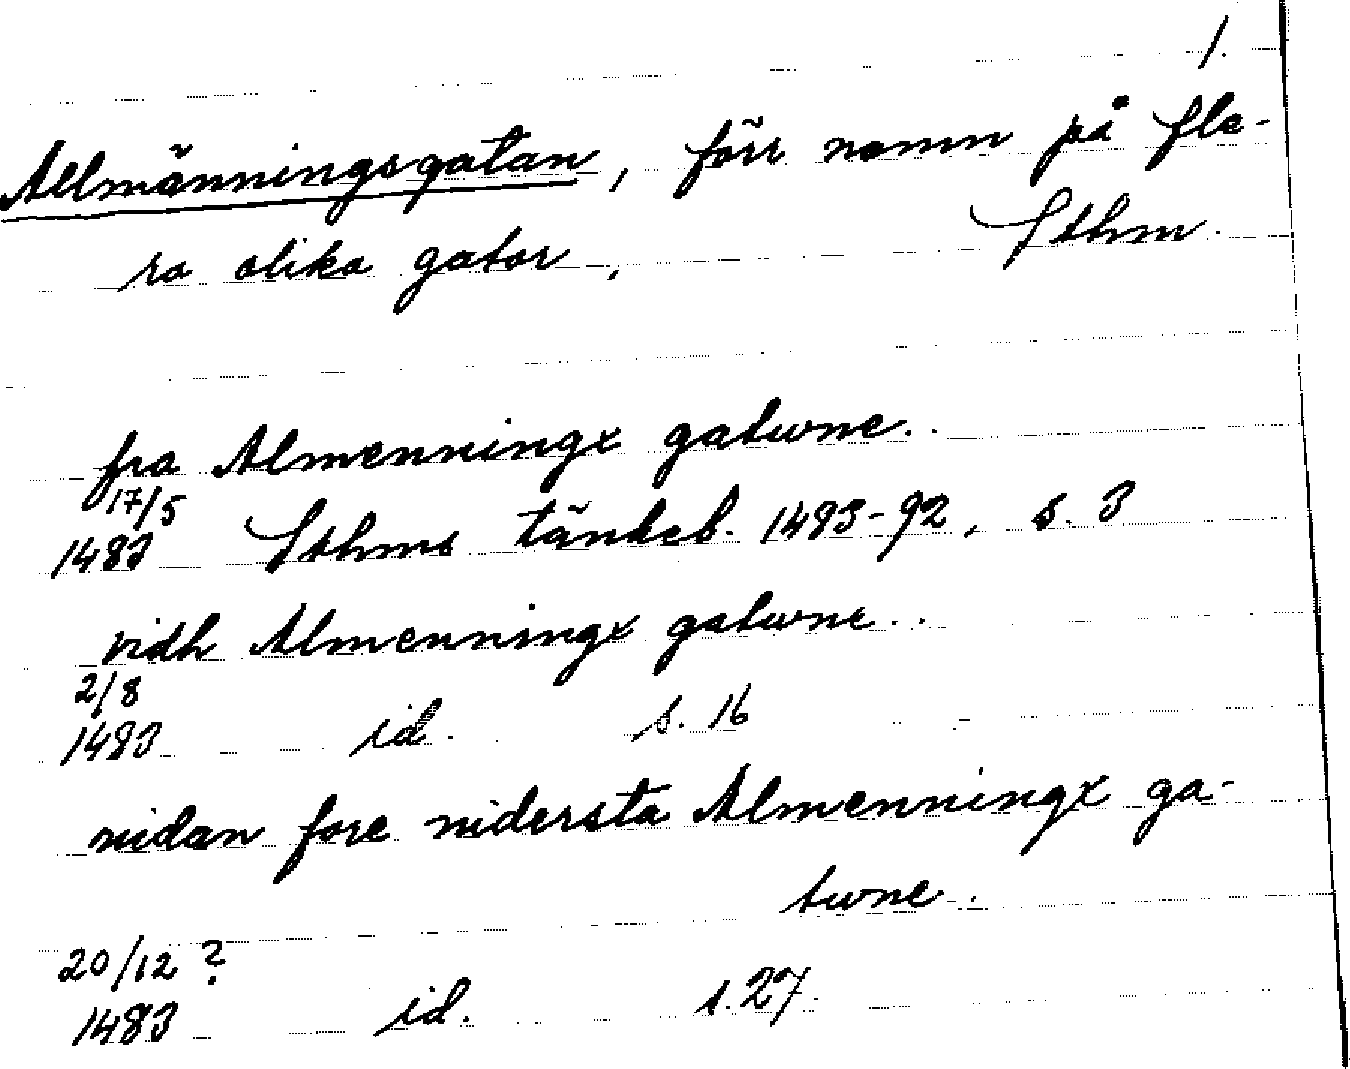 1.
Allmänningsgatan, förr namn på fle-
ra olika gator, Sthm.
fra Almenningx gatwne..
17/5
1483 Sthms tänkeb. 1483-92, s. 3
vidh Almenningx gatwne..
2/8
1483 id. s. 16
nidan fore nidersta Almenningx ga-
twne.
20/12 ?
1483 id. s. 27.